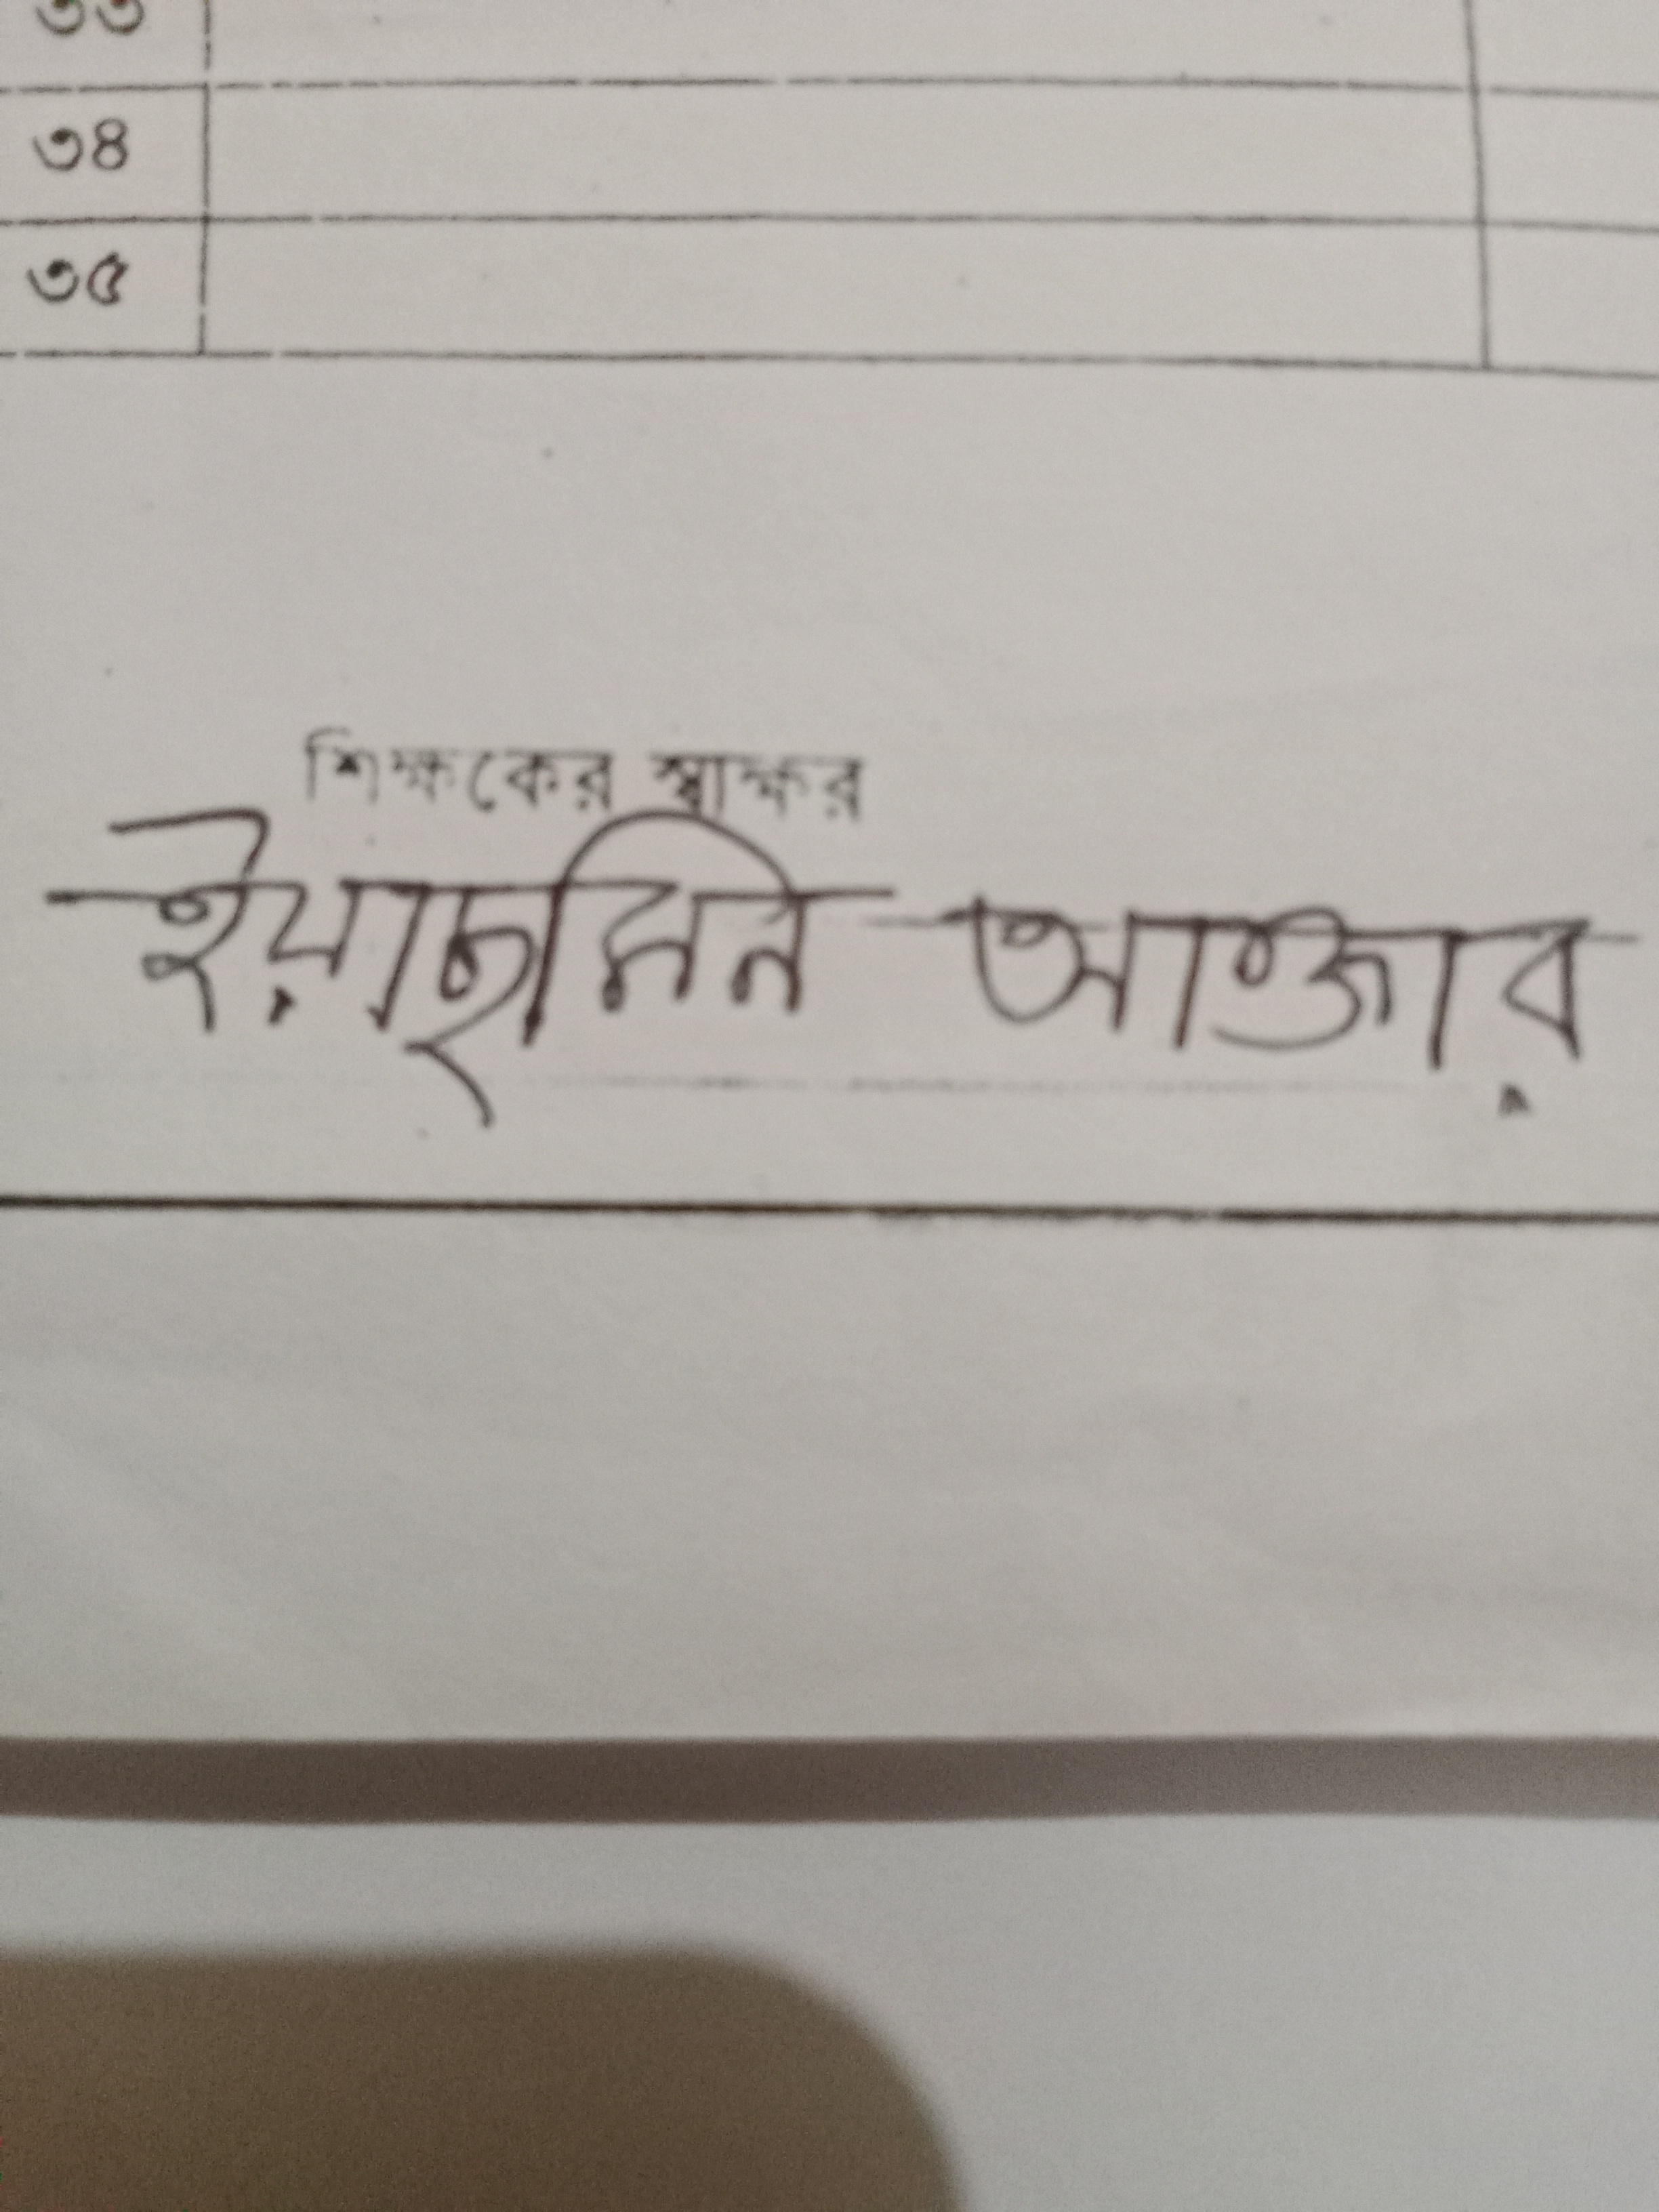 ৩৩
৩৪
৩৫
শিক্ষকের স্বাক্ষর
ইয়াছমিন আক্তার